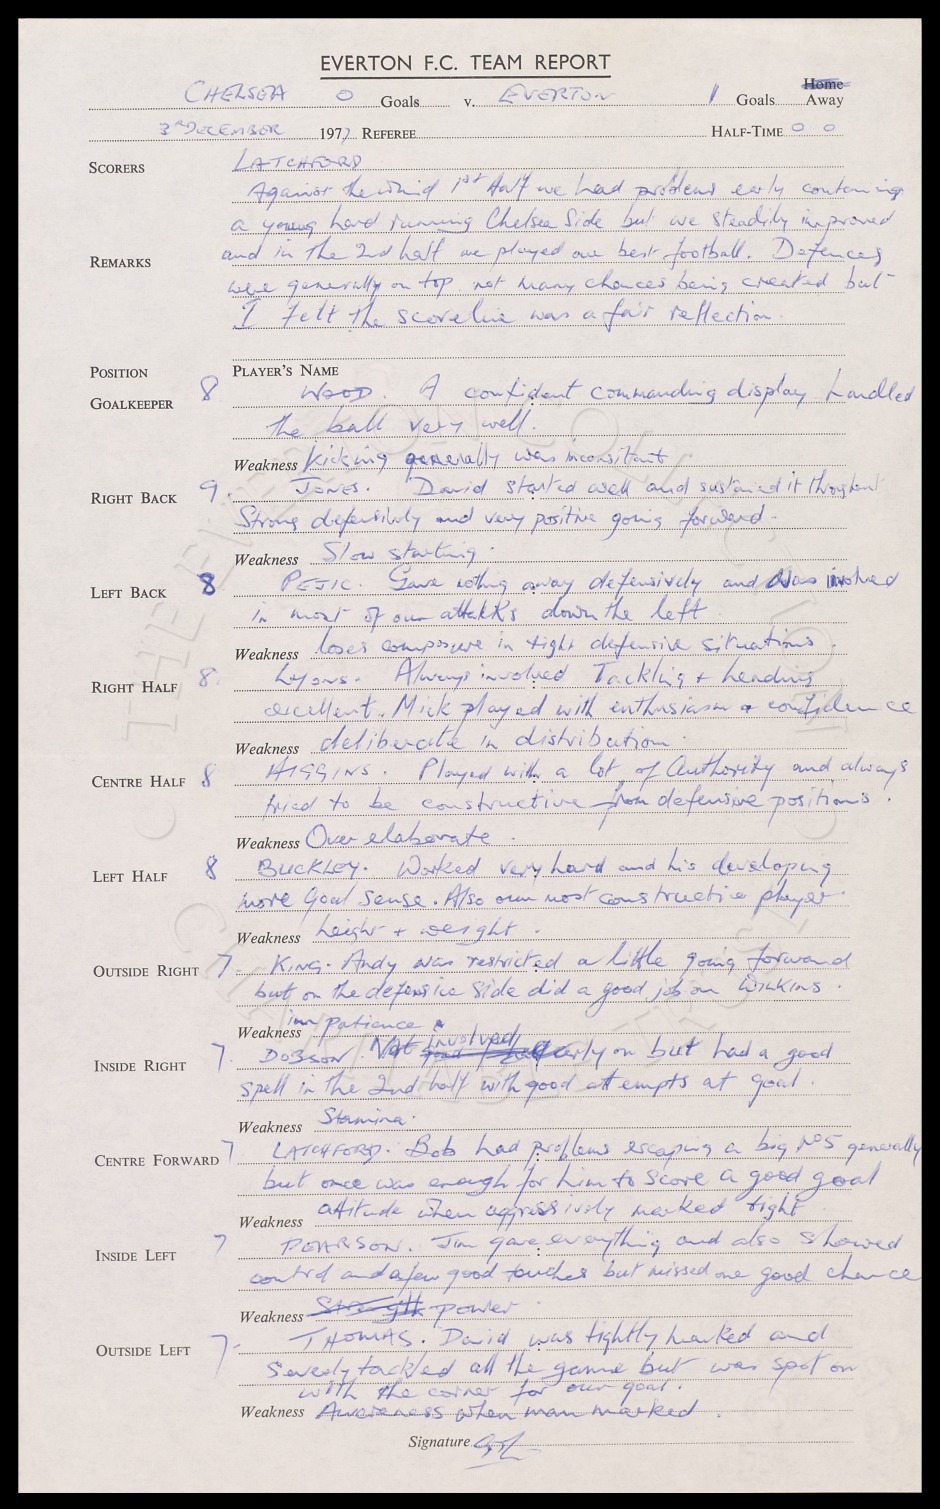 EVERTON F.C. TEAM REPORT
CHELSEA 0 Goals v. EVERTON 1 Goals Home Away
3RD DECEMBER 1977 REFEREE HALF-TIME 0 0
SCORERS LATCHFORD
Against the whind 1st Half we had problems early containing
a young hard running Chelsea Side but we steadily improved
REMARKS and in the 2nd half we played our best football. Defences
were generally on top not many chances being created but
I felt the scoreline was a fair reflection.
POSITION PLAYER'S NAME
GOALKEEPER 8 WOOD. A confident commanding display handled
the ball very well.
Weakness Kicking generally was inconsitant
RIGHT BACK 9. JONES. David started well and sustained it throughout
Strong defensively and very positive going forward.
Weakness Slow starting.
LEFT BACK 8 PEJIC. Gave nothing away defensively and was involved
in most of our attakks down the left
Weakness loses composure in tight defensive situations.
RIGHT HALF 8. Lyons. Always involved Tackling + heading
excellent. Mick played with enthusiasm + confidence
Weakness deliberate in distribution.
CENTRE HALF 8 HIGGINS. Played with a lot of Authority and always
tried to be constructive from defensive positions.
Weakness Over elaborate.
LEFT HALF 8 BUCKLEY. Worked very hard and his developing
more Goal Sense. Also our most constructive player.
Weakness height + weight.
OUTSIDE RIGHT 7. KING. Andy was restricted a little going forward
but on the defensive Side did a good job on Wilkins.
Weakness impatience
INSIDE RIGHT 7. DOBSON Not involved early on but had a good
spell in the 2nd half with good attempts at goal.
Weakness Stamina.
CENTRE FORWARD 7. LATCHFORD. Bob had problems escaping a big No5 generally
but once was enough for him to Score a good goal
Weakness attitude when aggressively marked tight
INSIDE LEFT 7 PEARSON. Jim gave everything and also showed
control and a few good touches but missed one good chance
Weakness Strength power.
OUTSIDE LEFT 7. THOMAS. David was tightly marked and
Severly tackled all the game but was spot on
with the corner for our goal.
Weakness Awareness when man marked.
Signature